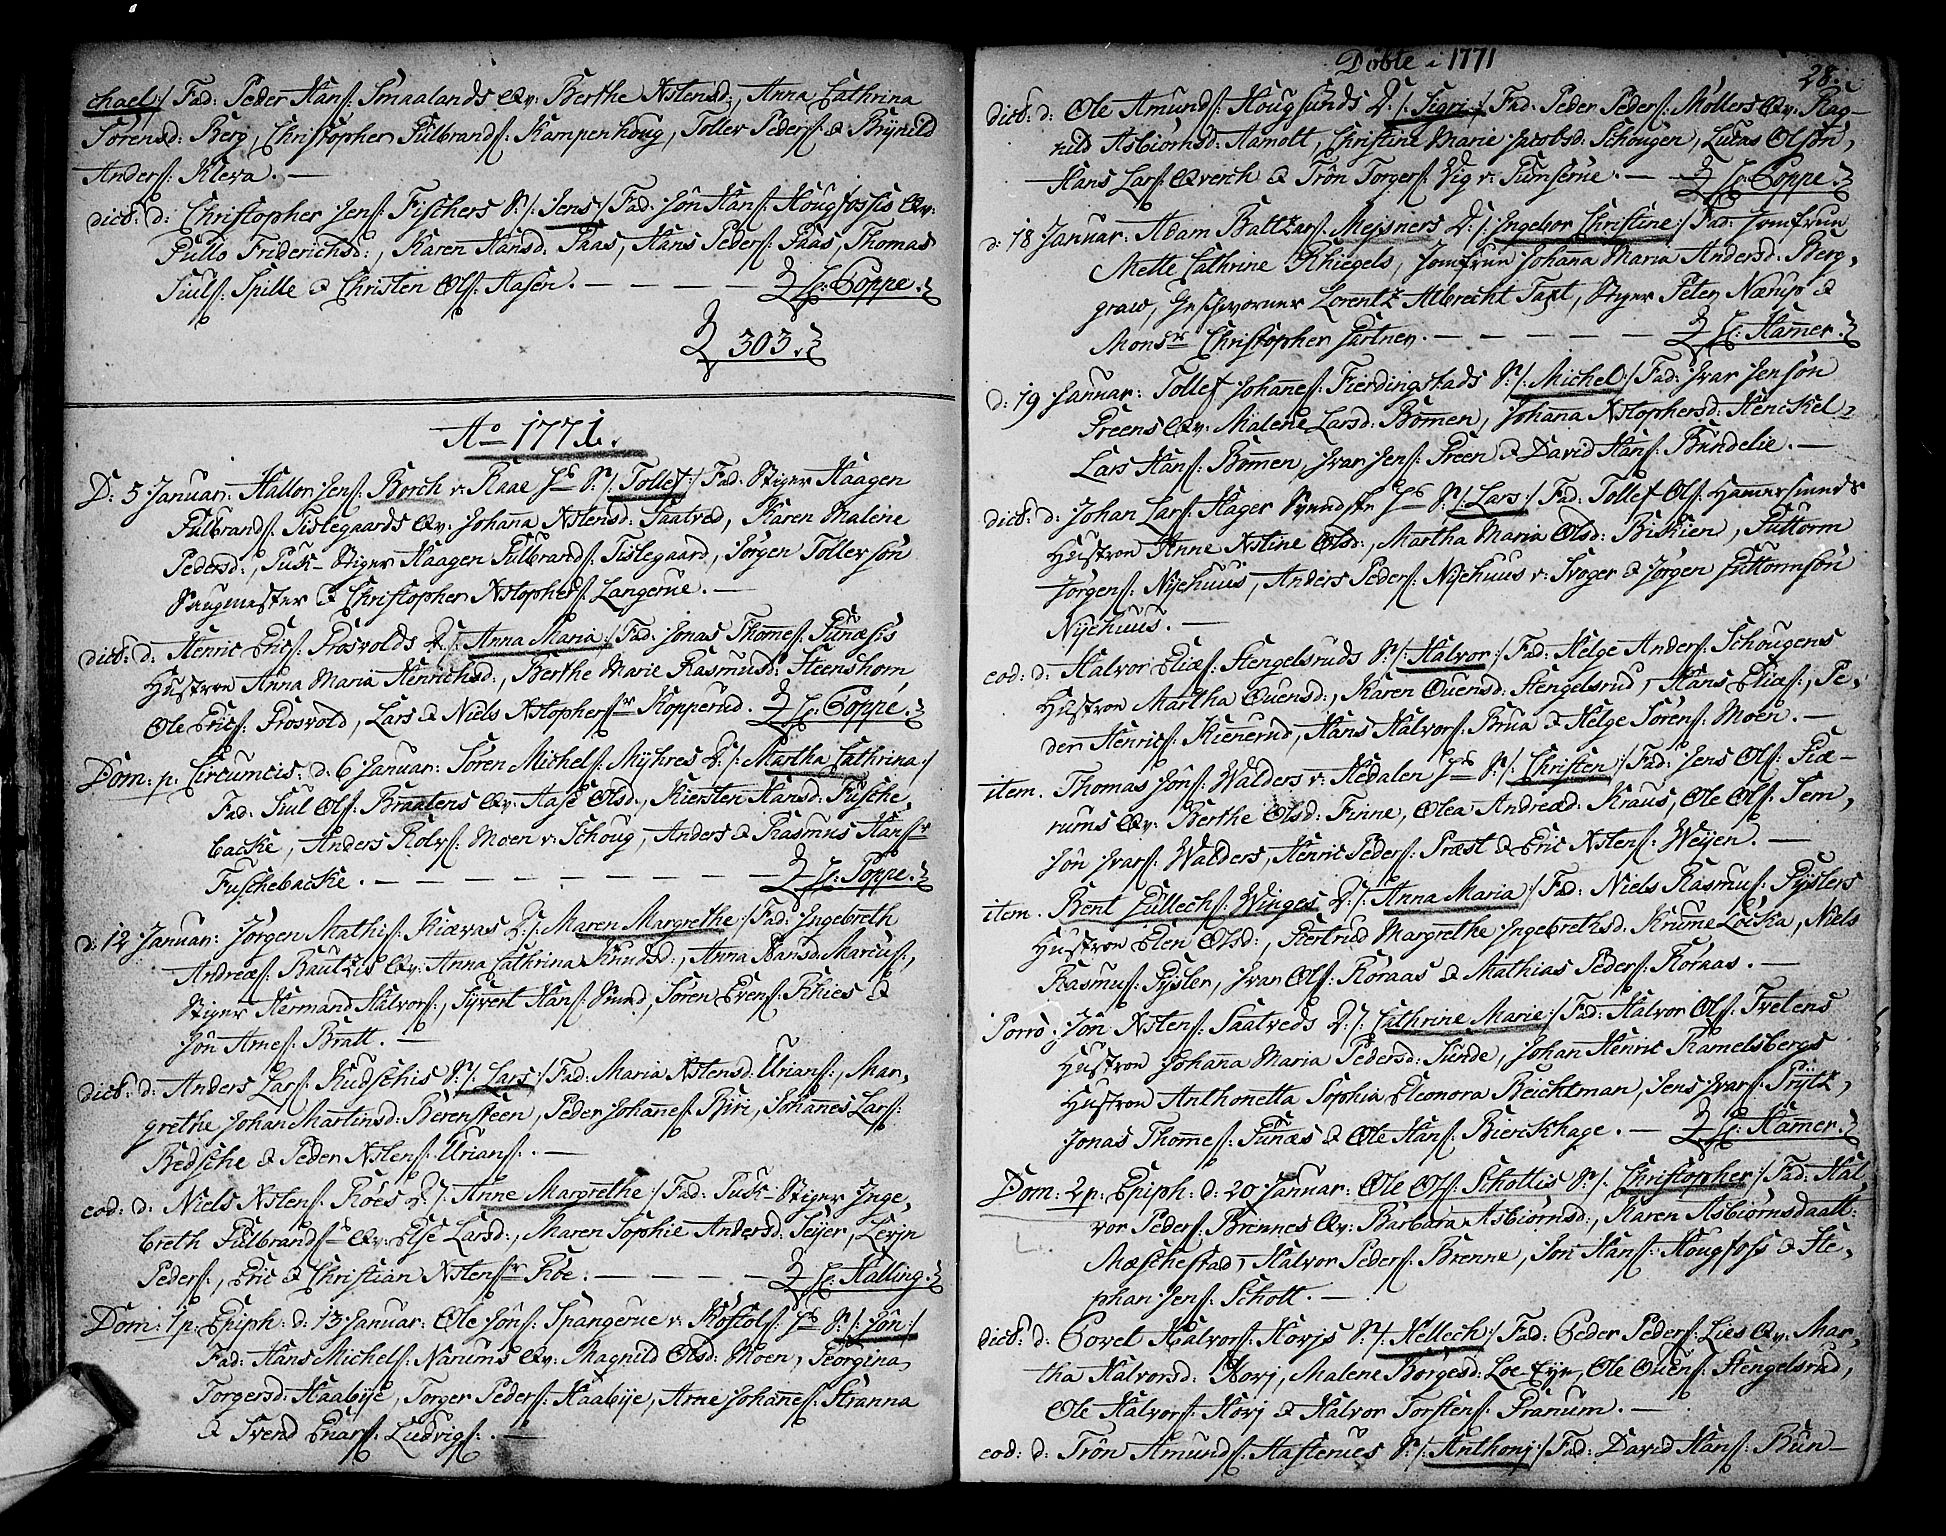 chael:/ Fad: Peder Hans: Smaalands Qv: Berthe Xstensd:, Anna Cathrina
Sörensd: Berg, Christopher Gulbrands: Kampenhoug, Tollev Peders: & Brynild
Anders: Kleva. —
dict: d: Christopher Jens: Fischers S:/: Jens:/ Fad: Jön Hans: Hougfossis Qv:
Gullo Friderichsd:, Karen Hansd: Saas, Hans Peders: Saas, Thomas
Siuls: Spille & Christen Ols: Aasen. — — — — Hr: Coppe.
303.
Ao 1771.
D: 5 Januar: Hallor Jens: Borch v: Raae S:/: Tollef:/ Fad: Stiger Haagen
Gulbrands: Tislegaards Qv: Johanna Xstensd: Saatved, Karen Malene
Pedersd:, Puk-Stiger Haagen Gulbrands: Tislegaard, Jörgen Tollevsön
Saugmester & Christopher Xstophers: Langerue. —
dict: d: Henric Erics: Frosvolds D:/: Anna Maria:/ Fad: Jonas Thomes: Funæsis
Hustroe Anna Maria Henrichsd:, Berthe Marie Rasmusd: Steenshorn,
Ole Erics: Frosvold, Lars & Niels Xstophersr Kopperud. Hr: Coppe.
Dom: p: Circumcis: d: 6 Januar: Sören Michels: Myhres D:/: Martha Cathrina:/
Fad: Siul Ols: Braatens Qv: Aase Olsd:, Kiersten Hansd: Fusche,
backe, Anders Rolvs: Moen v: Schoug, Anders & Rasmus Hansr
Fuschebacke. — — — — — — Hr: Poppe.
d: 12 Januar: Jörgen Mathis: Kiævas D:/: Maren Margrethe:/ Fad: Ingebreth
Andreas: Bautzis Qv: Anna Cathrina Knudsd:, Anna Hansd: Marcus:,
Stiger Hermand Halvors:, Syvert Hans: Sund, Sören Evens: Schies &
Jön Arnes: Bratt. —
dict: d: Anders Lars: Rudschis S:/: Lars:/ Fad: Maria Xstensd: Urians:, Mar,
grethe Johan Martinsd: Berensteen, Peder Johannes: Biri, Johannes Lars:
Bedsche & Peder Xstens: Urians:. —
eod: d: Niels Xstens: Röes D:/: Anne Margrethe:/ Fad: Puk-Stiger Inge,
breth Gulbrands: Qv: Else Larsd:, Maren Sophie Andersd: Seyer, Levin
Peders:, Eric & Christian Xstensr Röe: — — — — Hr: Halling.
Dom: 1 p: Epiph: d: 13 Januar: Ole Jöns: Spangerue v: Köstöl S:/: Jön:/
Fad: Hans Michels: Narums Qv: Magnild Olsd: Moen, Georgina
Torgersd: Haabye, Torger Peders: Haabye, Arne Johannes: Stranna
& Svend Enars: Ludvigs:. —
Döbte i 1771
28.
dict: d: Ole Amunds: Hougsunds D:/: Segri:/ Fad: Peder Peders: Möllers Qv: Rag-
nild Asbiörnsd: Aamott, Christine Marie Jacobsd: Schougen, Lucas Olsön,
Hans Lars: Qverch & Trön Torgers: Vig v: Sumserue. — Hr: Coppe.
d: 18 Januar: Adam Baltzars: Meisners D:/: Ingebor Christine:/ Fad: Jomfrue
Mette Cathrine Rhiegels, Jomfrue Johana Maria Andersd: Berg,
graw, Geschworner Lorentz Albrecht Taxt, Stiger Peter Nærup &
Monsr Christopher Gärtner. — — — — — Hr: Hamer.
d: 19 Januar: Tollef Johanes: Fierdingstads S:/: Michel:/ Fad: Ivar Jensön
Preens Qv: Malene Larsd: Bömen, Johana Xstophersd: Henckel,
Lars Hans: Bömen, Ivar Jens: Preen & David Hans: Bundelie. —
dict: d: Johan Lars: Hager S:/: Lars:/ Fad: Tollef Ols: Hamersmeds
Hustroe Anne Xstine Olsd:, Martha Maria Olsd: Biskien, Guttorm
Jörgens: Nyehuus, Anders Peders: Nyehuus v: Ivoger & Jörgen Guttormsön
Nyehuus. —
eod: d: Halvor Elias: Stengelsruds S:/: Halvor:/ Fad: Helge Anders: Schougens
Hustroe Martha Ouensd:, Karen Ouensd: Stengelsrud, Hans Elias:, Pe,
der Henrics: Kienerud, Hans Halvors: Brua & Helge Sörens: Moen. —
item. Thomas Jöns: Walders v: Hedalen S:/: Christen:/ Fad: Jens Ols: Giæ-
rums Qv: Berthe Olsd: Finne, Olea Andread: Kraus, Ole Ols: Sem,
Jön Ivars: Walders, Henric Peders: Præst & Eric Xstens: Weyen. —
item. Bent Gullechs: Winges D:/: Anna Maria:/ Fad: Niels Rasmus: Gyslers
Hustroe Elen Olsd:, Gertrud Margrethe Ingebrethsd: Krume Löcka, Niels
Rasmus: Gysler, Ivar Ols: Röraas & Mathias Peders: Röraas. —
Porro: Jön Xstens: Saatveds D:/: Cathrine Marie:/ Fad: Halvor Ols: Tvetens
Hustroe Johanna Maria Pedersd: Sunde, Johan Henric Ramelsbergs
Hustroe Anthonetta Sophia Eleonora Reichtman, Jens Ivars: Prÿtz,
Jonas Thomes: Funæs & Ole Hans: Bierckhage. — Hr: Hamer.
Dom: 2 p: Epiph: d: 20 Januar: Ole Ols: Schottis S:/: Christopher:/ Fad: Hal,
vor Peders: Brennes Qv: Barbara Asbiörnsd:, Karen Asbiörnsdaatt:
Mæschestad, Halvor Peders: Brenne, Jön Hans: Hougfoss & Ste,
phan Jens: Schott. —
dict: d: Govel Halvors: Hovis S:/: Kellech:/ Fad: Peder Peders: Lies Qv: Mar,
tha Halvorsd: Hovj, Malene Borgesd: Loe-Eye, Ole Ouens: Stengelsrud,
Ole Halvors: Hovj & Halvor Torstens: Granum. —
eod: d: Trön Amunds: Hastenues S:/: Anthonj:/ Fad: David Hans: Bun-